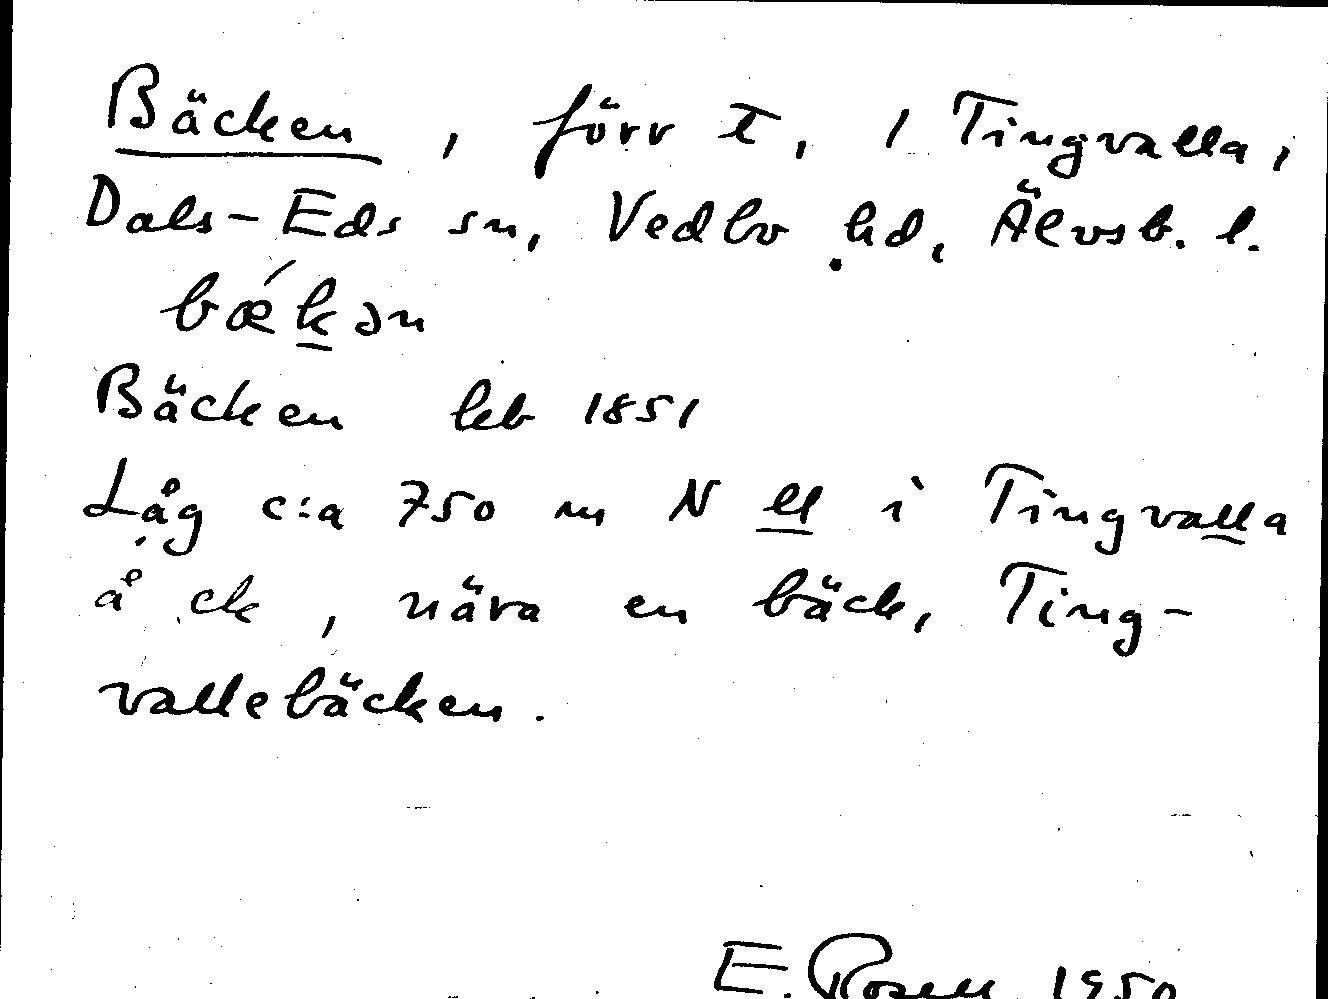 Bäcken, förr t, 1 Tingvalla,
Dals-Eds sn, Vedbo hd, Älvsb. l.
bǽkən
Bäcken hfb 1851
Låg c:a 750 m N ell i Tingvalla
å ek, nära en bäck, Ting-
vallebäcken.
E. Rosell 1950